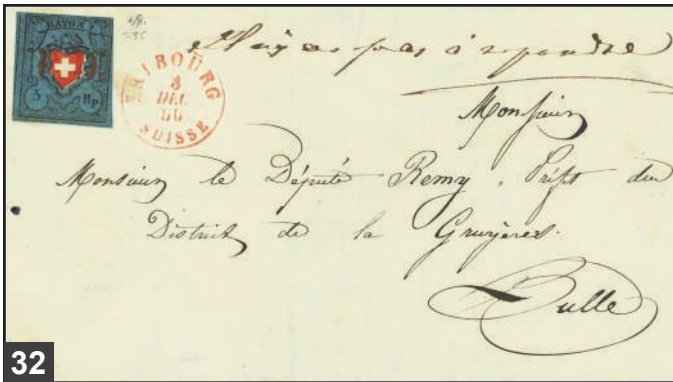 RAYON I
5 Rp.
FRIBOURG
3
DEC
50
SUISSE
à répondre
Monsieur
Monsieur le Député Remy, Préfet du
District de la Gruyères.
Bulle
32